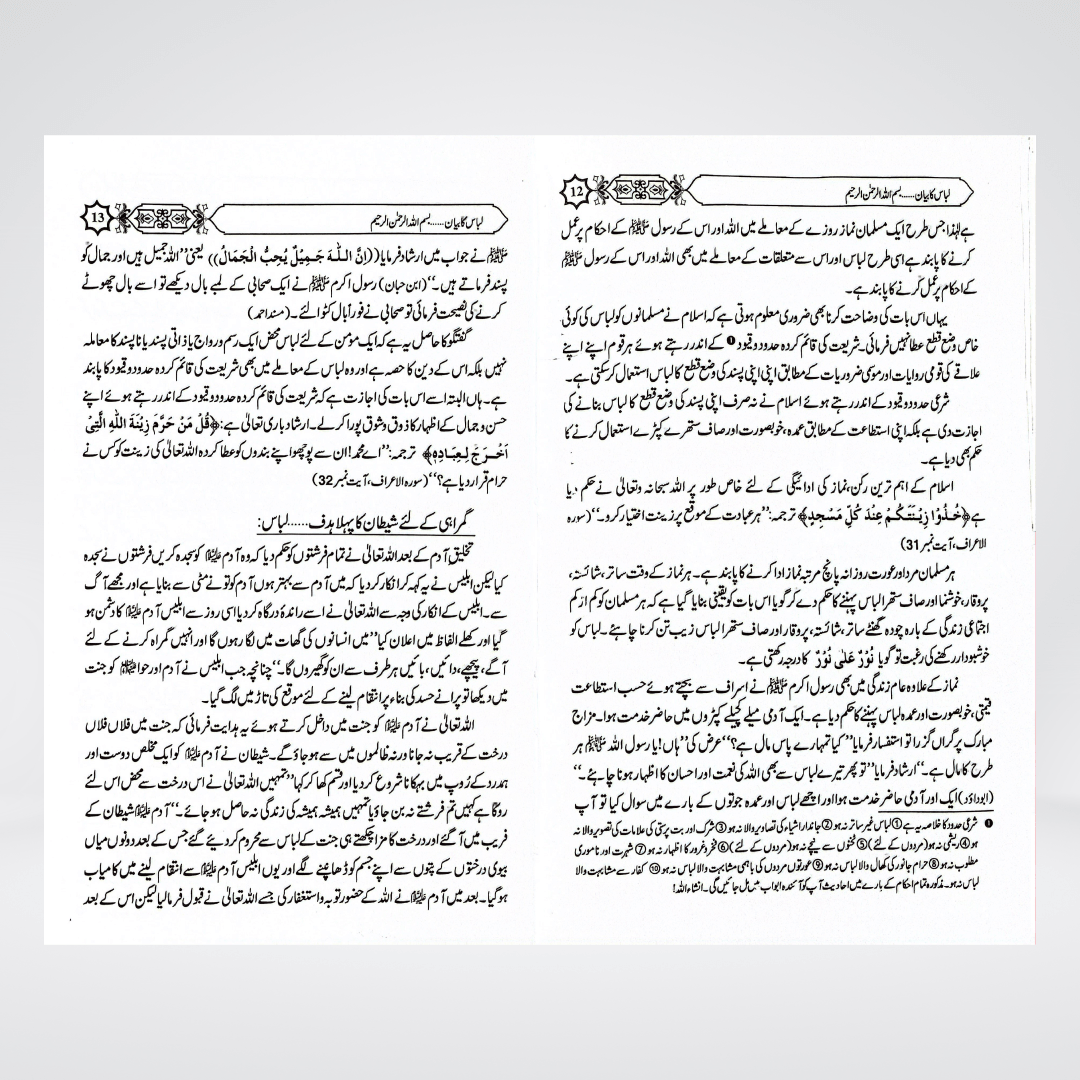 12
لباس کا بیان......بسم اللہ الرحمٰن الرحیم
ہے لہٰذا جس طرح ایک مسلمان نماز روزے کے معاملے میں اللہ اور اس کے رسول ﷺ کے احکام پر عمل
کرنے کا پابند ہے اسی طرح لباس اور اس سے متعلقات کے معاملے میں بھی اللہ اور اس کے رسول ﷺ
کے احکام پر عمل کرنے کا پابند ہے۔
یہاں اس بات کی وضاحت کرنا بھی ضروری معلوم ہوتی ہے کہ اسلام نے مسلمانوں کو لباس کی کوئی
خاص وضع قطع عطا نہیں فرمائی۔ شریعت کی قائم کردہ حدود و قیود ❶ کے اندر رہتے ہوئے ہر قوم اپنے اپنے
علاقے کی قومی روایات اور موسمی ضروریات کے مطابق اپنی اپنی پسند کی وضع قطع کا لباس استعمال کرسکتی ہے۔
شرعی حدود و قیود کے اندر رہتے ہوئے اسلام نے نہ صرف اپنی پسند کی وضع قطع کا لباس بنانے کی
اجازت دی ہے بلکہ اپنی استطاعت کے مطابق عمدہ، خوبصورت اور صاف ستھرے کپڑے استعمال کرنے کا
حکم بھی دیا ہے۔
اسلام کے اہم ترین رکن، نماز کی ادائیگی کے لئے خاص طور پر اللہ سبحانہ وتعالیٰ نے حکم دیا
ہے ﴿خُذُوْا زِيْنَتَكُمْ عِنْدَ كُلِّ مَسْجِدٍ﴾ ترجمہ: ’’ہر عبادت کے موقع پر زینت اختیار کرو۔‘‘ (سورہ
الاعراف، آیت نمبر 31)
ہر مسلمان مرد اور عورت روزانہ پانچ مرتبہ نماز ادا کرنے کا پابند ہے۔ ہر نماز کے وقت ساتر، شائستہ،
پروقار، خوشنما اور صاف ستھرا لباس پہننے کا حکم دے کر گویا اس بات کو یقینی بنایا گیا ہے کہ ہر مسلمان کو کم از کم
اجتماعی زندگی کے بارہ چودہ گھنٹے ساتر، شائستہ، پروقار اور صاف ستھرا لباس زیب تن کرنا چاہئے۔ لباس کو
خوشبودار رکھنے کی رغبت تو گویا نُوْرٌ عَلٰی نُوْرٌ کا درجہ رکھتی ہے۔
نماز کے علاوہ عام زندگی میں بھی رسول اکرم ﷺ نے اسراف سے بچتے ہوئے حسب استطاعت
قیمتی، خوبصورت اور عمدہ لباس پہننے کا حکم دیا ہے۔ ایک آدمی میلے کچیلے کپڑوں میں حاضر خدمت ہوا۔ مزاج
مبارک پر گراں گزرا تو استفسار فرمایا ’’کیا تمہارے پاس مال ہے؟‘‘ عرض کی ’’ہاں! یا رسول اللہ ﷺ ہر
طرح کا مال ہے۔‘‘ ارشاد فرمایا ’’تو پھر تیرے لباس سے بھی اللہ کی نعمت اور احسان کا اظہار ہونا چاہئے۔‘‘
(ابوداؤد) ایک اور آدمی حاضر خدمت ہوا اور اچھے لباس اور عمدہ جوتوں کے بارے میں سوال کیا تو آپ
❶ شرعی حدود کا خلاصہ یہ ہے ① لباس غیر ساتر نہ ہو ② جاندار اشیاء کی تصاویر والا نہ ہو ③ شرک اور بت پرستی کی علامات کی تصویر والا نہ
ہو ④ ریشمی نہ ہو (مردوں کے لئے) ⑤ ٹخنوں سے نیچے نہ ہو (مردوں کے لئے) ⑥ فخر و غرور کا اظہار نہ ہو ⑦ شہرت اور ناموری
مطلوب نہ ہو ⑧ حرام جانور کی کھال والا لباس نہ ہو ⑨ عورتوں، مردوں کی باہمی مشابہت والا لباس نہ ہو ⑩ کفار سے مشابہت والا
لباس نہ ہو۔ مذکورہ تمام احکام کے بارے میں احادیث آپ کو آئندہ ابواب میں مل جائیں گی۔ انشاء اللہ!
13
لباس کا بیان......بسم اللہ الرحمٰن الرحیم
ﷺ نے جواب میں ارشاد فرمایا ((اِنَّ اللّٰهَ جَمِيْلٌ يُحِبُّ الْجَمَالُ)) یعنی ’’اللہ جمیل ہیں اور جمال کو
پسند فرماتے ہیں۔‘‘ (ابن حبان) رسول اکرم ﷺ نے ایک صحابی کے لمبے بال دیکھے تو اسے بال چھوٹے
کرنے کی نصیحت فرمائی تو صحابی نے فوراً بال کٹوا لئے۔ (مسند احمد)
گفتگو کا حاصل یہ ہے کہ ایک مؤمن کے لئے لباس محض ایک رسم و رواج یا ذاتی پسند یا ناپسند کا معاملہ
نہیں بلکہ اس کے دین کا حصہ ہے اور وہ لباس کے معاملے میں بھی شریعت کی قائم کردہ حدود و قیود کا پابند
ہے۔ ہاں البتہ اسے اس بات کی اجازت ہے کہ شریعت کی قائم کردہ حدود و قیود کے اندر رہتے ہوئے اپنے
حسن و جمال کے اظہار کا ذوق و شوق پورا کر لے۔ ارشاد باری تعالیٰ ہے: ﴿قُلْ مَنْ حَرَّمَ زِيْنَةَ اللّٰهِ الَّتِيْ
اَخْرَجَ لِعِبَادِهٖ﴾ ترجمہ: ’’اے محمد! ان سے پوچھو اپنے بندوں کو عطا کردہ اللہ تعالیٰ کی زینت کو کس نے
حرام قرار دیا ہے؟‘‘ (سورہ الاعراف، آیت نمبر 32)
گمراہی کے لئے شیطان کا پہلا ہدف......لباس:
تخلیق آدم کے بعد اللہ تعالیٰ نے تمام فرشتوں کو حکم دیا کہ وہ آدم علیہ السلام کو سجدہ کریں فرشتوں نے سجدہ
کیا لیکن ابلیس نے یہ کہہ کر انکار کردیا کہ میں آدم سے بہتر ہوں آدم کو تو نے مٹی سے بنایا ہے اور مجھے آگ
سے۔ ابلیس کے انکار کی وجہ سے اللہ تعالیٰ نے اسے راندۂ درگاہ کردیا اسی روز سے ابلیس آدم علیہ السلام کا دشمن ہو
گیا اور کھلے الفاظ میں اعلان کیا ’’میں انسانوں کی گھات میں لگا رہوں گا اور انہیں گمراہ کرنے کے لئے
آگے، پیچھے، دائیں، بائیں ہر طرف سے ان کو گھیروں گا۔‘‘ چنانچہ جب ابلیس نے آدم اور حوا علیہما السلام کو جنت
میں دیکھا تو پرانے حسد کی بناء پر انتقام لینے کے لئے موقع کی تاڑ میں لگ گیا۔
اللہ تعالیٰ نے آدم علیہ السلام کو جنت میں داخل کرتے ہوئے یہ ہدایت فرمائی کہ جنت میں فلاں فلاں
درخت کے قریب نہ جانا ورنہ ظالموں میں سے ہو جاؤ گے۔ شیطان نے آدم علیہ السلام کو ایک مخلص دوست اور
ہمدرد کے رُوپ میں بہکانا شروع کردیا اور قسم کھا کر کہا ’’تمہیں اللہ تعالیٰ نے اس درخت سے محض اس لئے
روکا ہے کہیں تم فرشتے نہ بن جاؤ یا تمہیں ہمیشہ ہمیشہ کی زندگی نہ حاصل ہو جائے۔‘‘ آدم علیہ السلام شیطان کے
فریب میں آ گئے اور درخت کا مزا چکھتے ہی جنت کے لباس سے محروم کر دیئے گئے جس کے بعد دونوں میاں
بیوی درختوں کے پتوں سے اپنے جسم کو ڈھانپنے لگے اور یوں ابلیس آدم علیہ السلام سے انتقام لینے میں کامیاب
ہو گیا۔ بعد میں آدم علیہ السلام نے اللہ کے حضور توبہ و استغفار کی جسے اللہ تعالیٰ نے قبول فرما لیا لیکن اس کے بعد